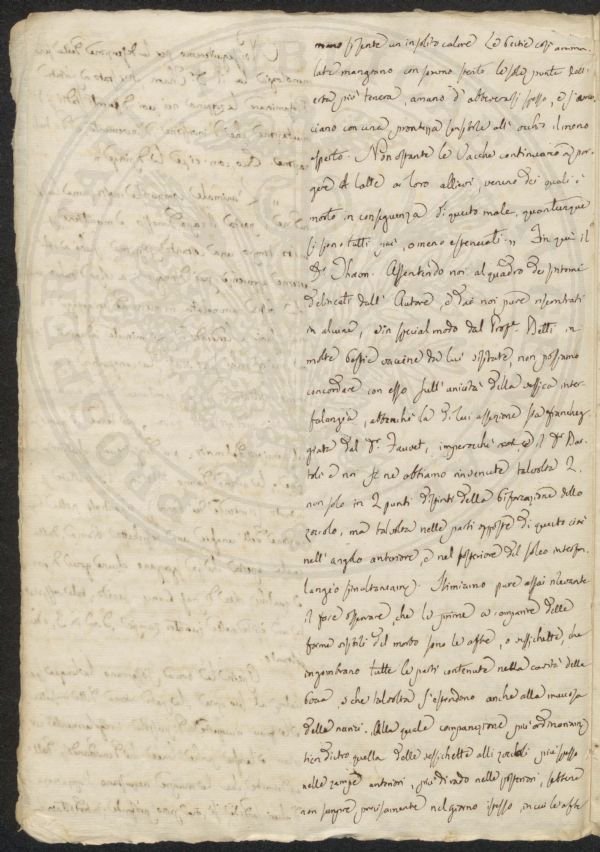 mano si sente un insolito calore. Le bestie così amma-
late mangiano con sommo stento le sole punte dell'
erba più tenera, amano d' abbeverarsi spesso, e
ciano con una prontezza sensibile all' occhio il meno
esperto. Non ostante le Vacche continuano a por-
gere il latte ai loro allievi, veruno dei quali è
morto in conseguenza di questo male, quantunque
si sieno tutti più, o meno estenuati. " Fin quì il
Dr. Assentendo noi al quadro dei sintomi
delineati dall' Autore, e da noi pure riscontrati
in alcune, e in special modo dal Profr. Betti in
molte bestie vaccine da lui visitate, non possiamo
concordare con esso sull' unicità della vessica inter-
falangea, abbenchè la di lui asserzione sia
giata dal Sr. Fauvet, imperocchè e il Dr. Bar-
toli e noi se ne abbiamo rinvenute talvolta 2.
non solo in 2 punti distinti della biforcazione dello
zoccolo, ma talvolta nelle parti opposte di questo cioè
nell' angolo anteriore, e nel posteriore del solco interfa-
langeo simultaneame. Stimiamo pure assai rilevante
il fare osservare, che le prime a comparire delle
forme visibili del morbo sono le afte, o vessichette, che
ingombrano tutte le parti contenute nella cavità della
bocca, e che talvolta s' estendono anche alla mucosa
delle narici. Alla quale comparizione più ordinariam
tien dietro quella delle vessichette alli zoccoli più spesso
nelle zampe anteriori, più di rado nelle posteriori, sebbene
non sempre precisamente nel giorno istesso, in cui le afte